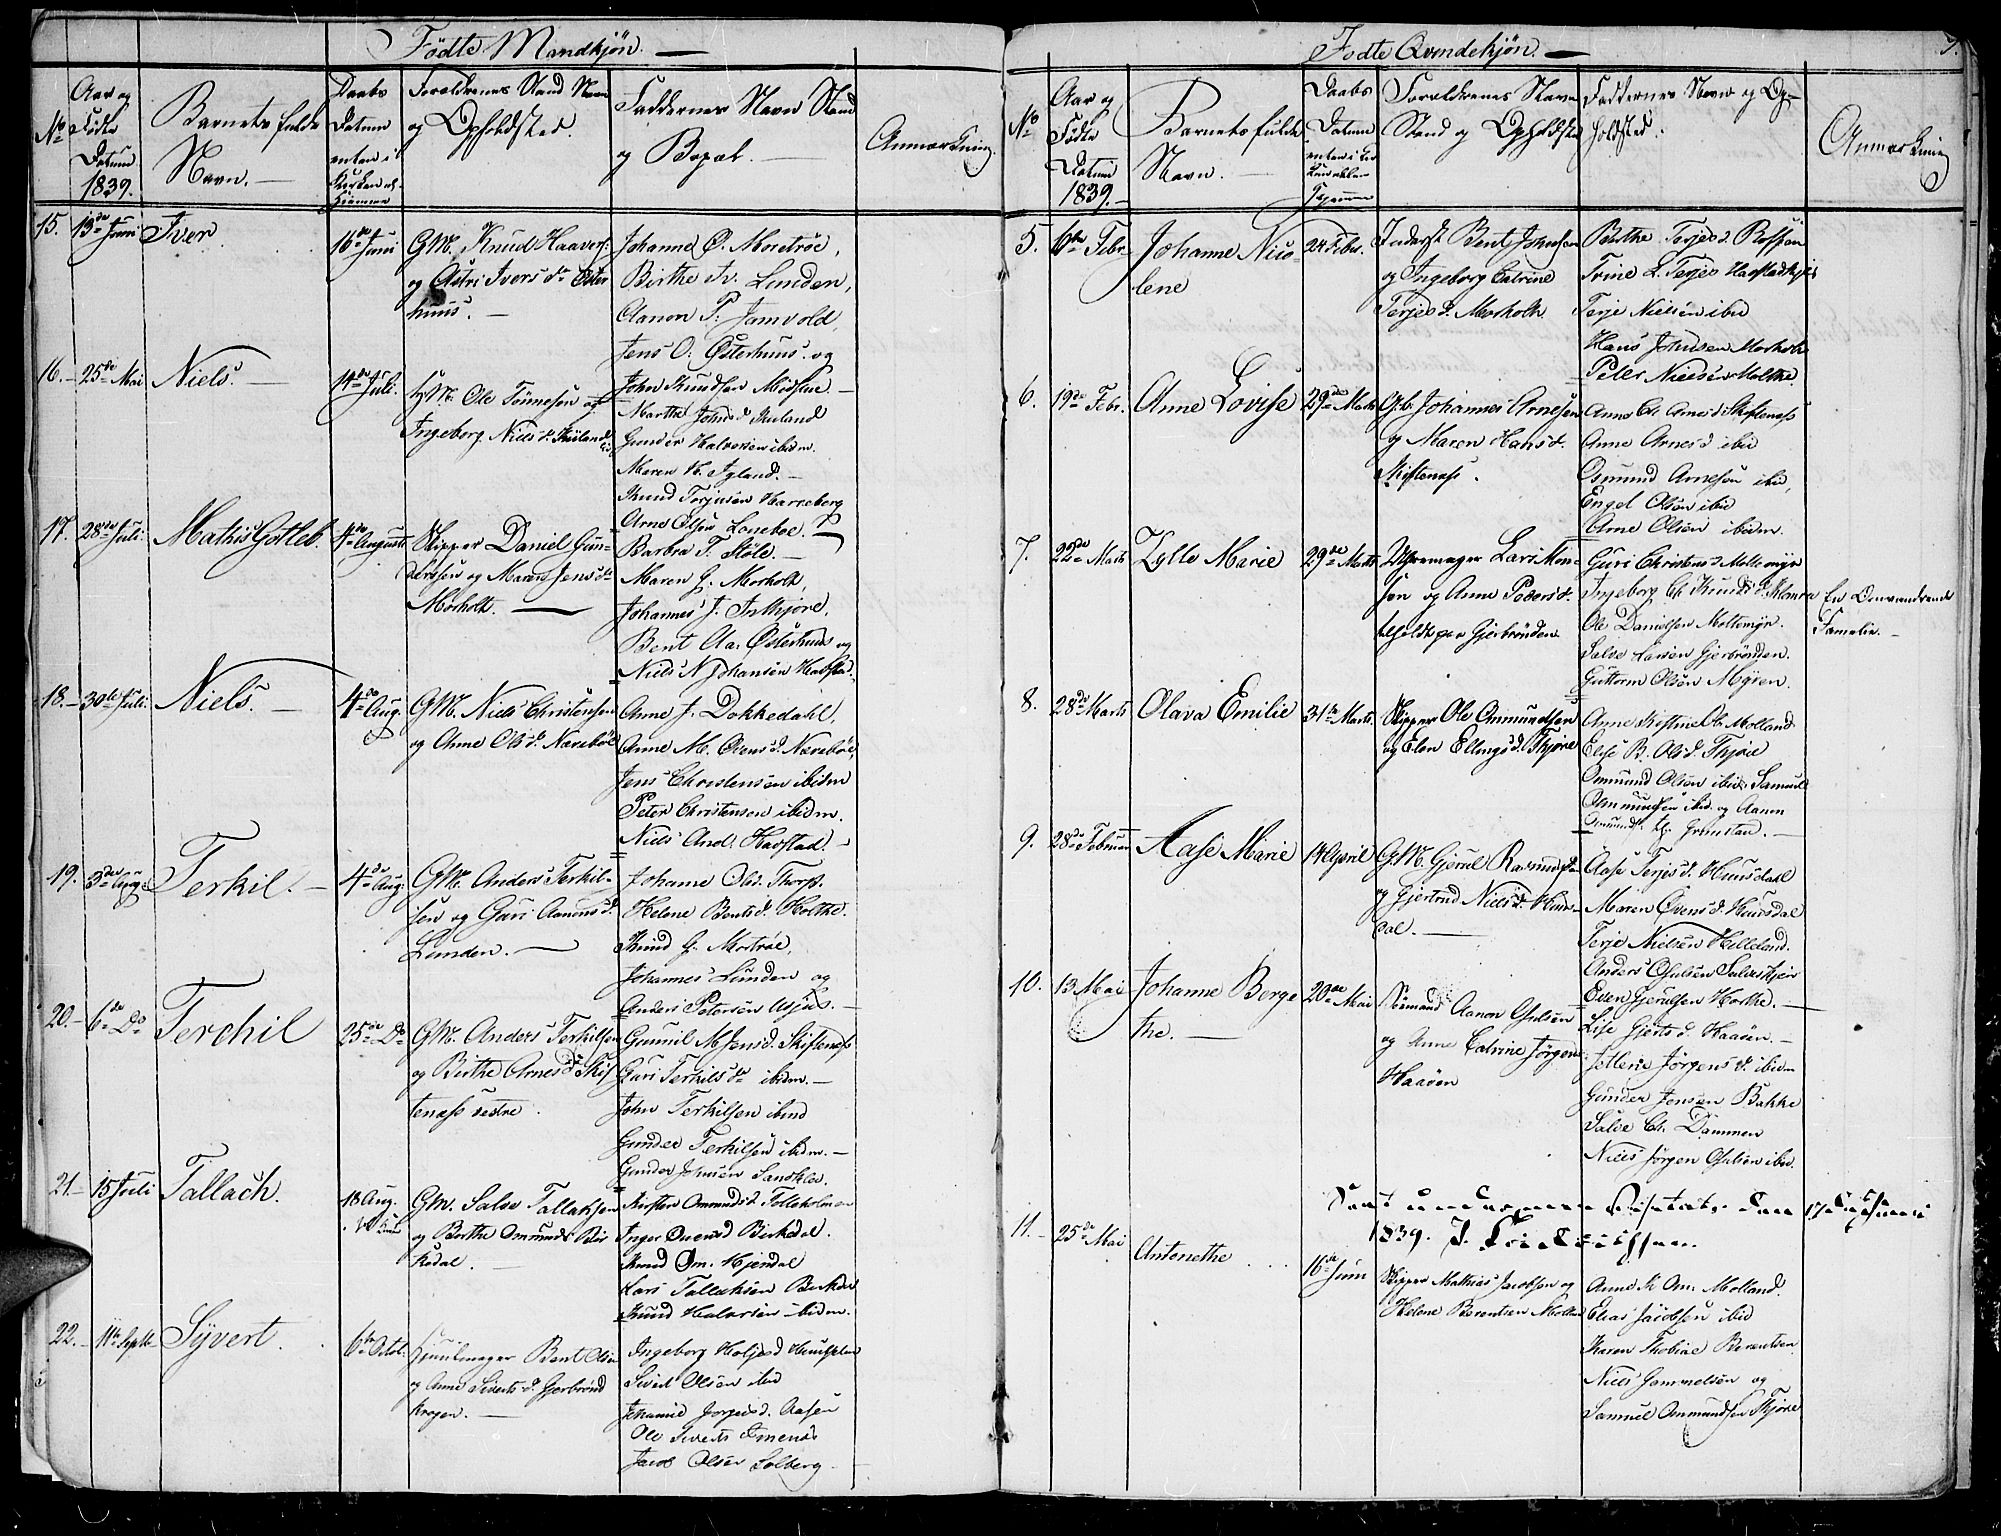 Födte Mandkjön.
No
Aar og Födte Datum 1839.
Barnets fulde Navn.
Daabs Datum enten i Kirken el. hjemme
Foraldrenes Stand Navn og Opholdsted.
Faddernes Navn Stand og Bopæl.
Anmærkning.
15. 13de Juni Iver 16de Juni
GM. Knud Haavers:
og Astri Ivers dr. Öster
huus.
Johanne O. Moretröe,
Birthe Iv. Lunden,
Aanon P. Jamvold,
Jens O. Österhuus og
John Knudsen Midtlue.
16. 25de Mai Niels. 14de Juli.
GM. Ole Tönnesön og
Ingeborg Niels d.
Marthe Johns d.
Gunder Halvorsen ibidm.
Maren N. Igland.
Knud Torjusen Harreberg
Arne Olsen
17. 28de Juli. Mathis Gotleb. 4de August
Skipper Daniel Gun-
dersen og Maren Jens dr.
Morholt.
Barbra T. Stöle.
Maren G. Morholt,
Johannes J. Inthjöre,
Bent Aa. Österhuus og
Niels N Johansen Havstad.
18. 30te Juli. Niels. 4de Aug.
GM. Niels Christensen
og Anne Ols d. Næreböe
Anne J. Dokkedahl,
Anne M. Ovens d. Næreböe,
Jens Christensen ibidm
Peter Christensen ibidm.
Niels And. Havstad.
19. 3de Aug: Terkil. 4de Aug.
GM. Anders Terkil-
sen og Guri Aanens d.
Lunden.
Johanne Ols. Thorp.
Helene Bents d. Holthe.
Knud G. Mortröe,
Johannes Lunden og
Anders Petersen
20. 6de Do Terchil 25de Do
GM. Anders Terkilsen
og Birthe Arnes dr Skif
tenæss vestre.
Gunnil M Jens d. Skiftenæss
Guri Terkils dr ibidm.
John Terkilsen ibmd
Gunder Terkilsen ibidm.
Gunder Johnsen
21. 15 Juli Tallach. 18 Aug.
GM. Salve Tallaksen
og Berthe Ommunds Bir
kedal.
Kirsten Ommunds d. Tolleholmen
Inger Ovens d Birkedal.
Knud Om. Hjendal
Lars Tallaksen Birkedal
Knud Halvorsen ibidm.
22. 11te Septbr Syvert. 6te Octob:
Bent Olsen
og Anne Siverts d. Gjerbrönd
krogen.
Ingeborg Holjes d
Sivert Olsen ibid
Johanne Aasen
Ole Siverts
Jacob Olsen Solberg
Födte Qvindekjön. 9.
No
Aar og Födte Datum 1839.
Barnets fulde Navn.
Daabs Datum
Foraldrenes Navn Stand og Opholdsted
Faddernes Navn og Op-
holdsted.
Anmærkning
5. 6te Febr. Johanne Nico
lene 24 Febr.
Inderst Bent Johnsen
og Ingeborg Catrine
Terjes d. Morholt.
Berthe Terjes d.
Trine L. Terjes
Terje Nielsen ibid
Hans Johnsen Morholt
Peter Nielsen Molthe.
6. 19de Febr. Anne Lovise 29de Marts
Gb. Johannes Arnesen
og Maren Hans d.
Skiftenæss.
Anne El. Arnes d. Skiftenæss
Anne Arnes d ibid
Osmund Arnesön ibid,
Engel Olsen ibid
Arne Olsen ibidm.
7. 22de Marts Zylle Marie 29de Marts
Uhremager Lars Mon-
sen og Anne Peders d.
opholdt paa Gjerbrönden
Guri Christens d Moltemyr
Ingeborg Ch Knuds d.
Ole Danielsen Moltemyr.
Salve Larsen Gjerbrönden.
Guttorm Olsön Myren.
En Omvandrende
Familie.
8. 28de Marts Olava Emilie 31te Marts.
Skipper Ole Ommundsen
og Elen Ellings d. Fhjöre
Anne Kistine Ol. Molland
Else B. Ols d. Fhjöre
Ommund Olsen ibid. Samuel
Ommundsen ibid. og Aanon
Osmunds. Grimstad.
9. 28de Februar Aase Marie 14 April
GM. Gjerul Rasmusen
og Gjertrud Niels d. Huus-
dal.
Aase Terjes d. Huusdahl
Maren Övens d. Huusdal
Terje Nielsön Helleland.
Anders
Even Gjerulsen Holthe.
10. 13 Mai Johanne Berge
the. 20de Mai
Sömand Aanon Osulsen
og Anne Catrine Jörgens
Haaöen
Lise Gjerts d. Haaöen.
Jörgens d. ibidm
Gunder Jensen Bakke
Salve Ch. Dammen
Niels Jörgen Osulsen ibid.
Seet under min Visitats den 17de Juni
1839.
11. 25de Mai Antonethe 16de Juni
Skipper Mathias Jacobsen og
Helene Berentsen Molland
Anne K Om. Molland.
Elias Jacobsen ibid
Karen Thobine Berentsen
Niels Gammelsön og
Samuel Ommundsen Fhjöre